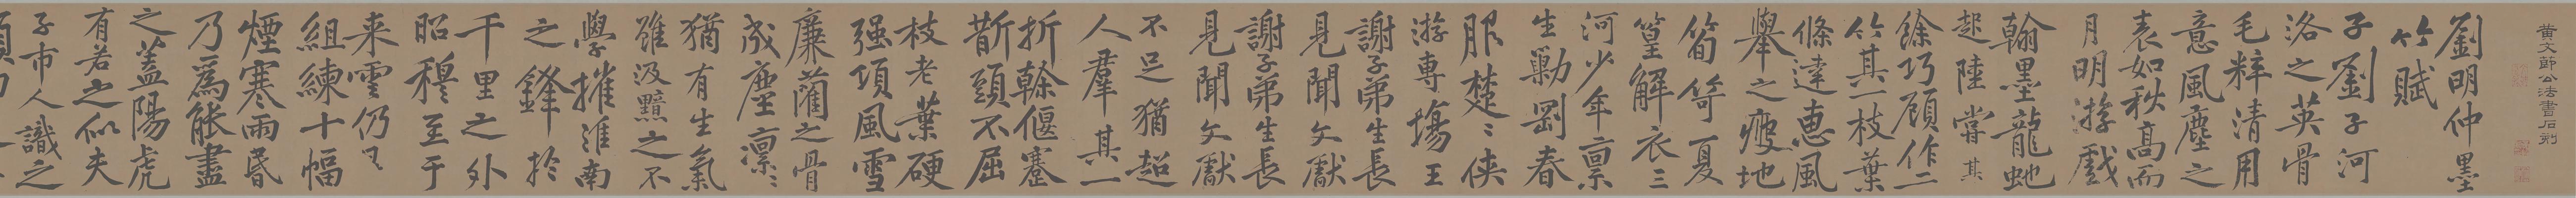 黄文節公法書石刻
劉明仲墨
竹賦
子劉子河
洛之英骨
毛粹清用
意風塵之
表如秋高而
月明游戲
翰墨龍虵
起陸嘗其
餘巧顧作二
竹其一枝葉
條達惠風
舉之瘦地
筍笴夏
篁解衣三
河少年稟
生勦剛春
服楚〻俠
游專場王
謝子弟生長
見聞文獻
謝子弟生長
見聞文獻
不足猶超
人羣其一
折榦偃蹇
斮頭不屈
枝老葉硬
强項風雪
廉藺之骨
成塵凛〻
猶有生氣
雖汲黯之不
學摧淮南
之鋒於
千里之外
昭穆至于
来雲仍
組練十幅
煙寒雨昏
乃爲能盡
之蓋陽虎
有若之似夫
子市人識之